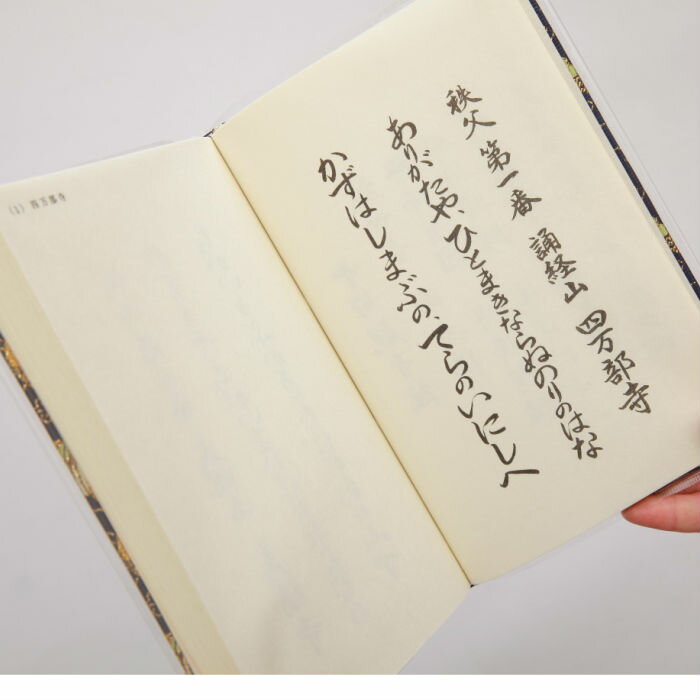 秩父 第一番 誦経山 四万部寺
ありがたや、ひとまきならぬのりのはな
かずはしまぶの、てらのいにしへ
(1) 四万部寺